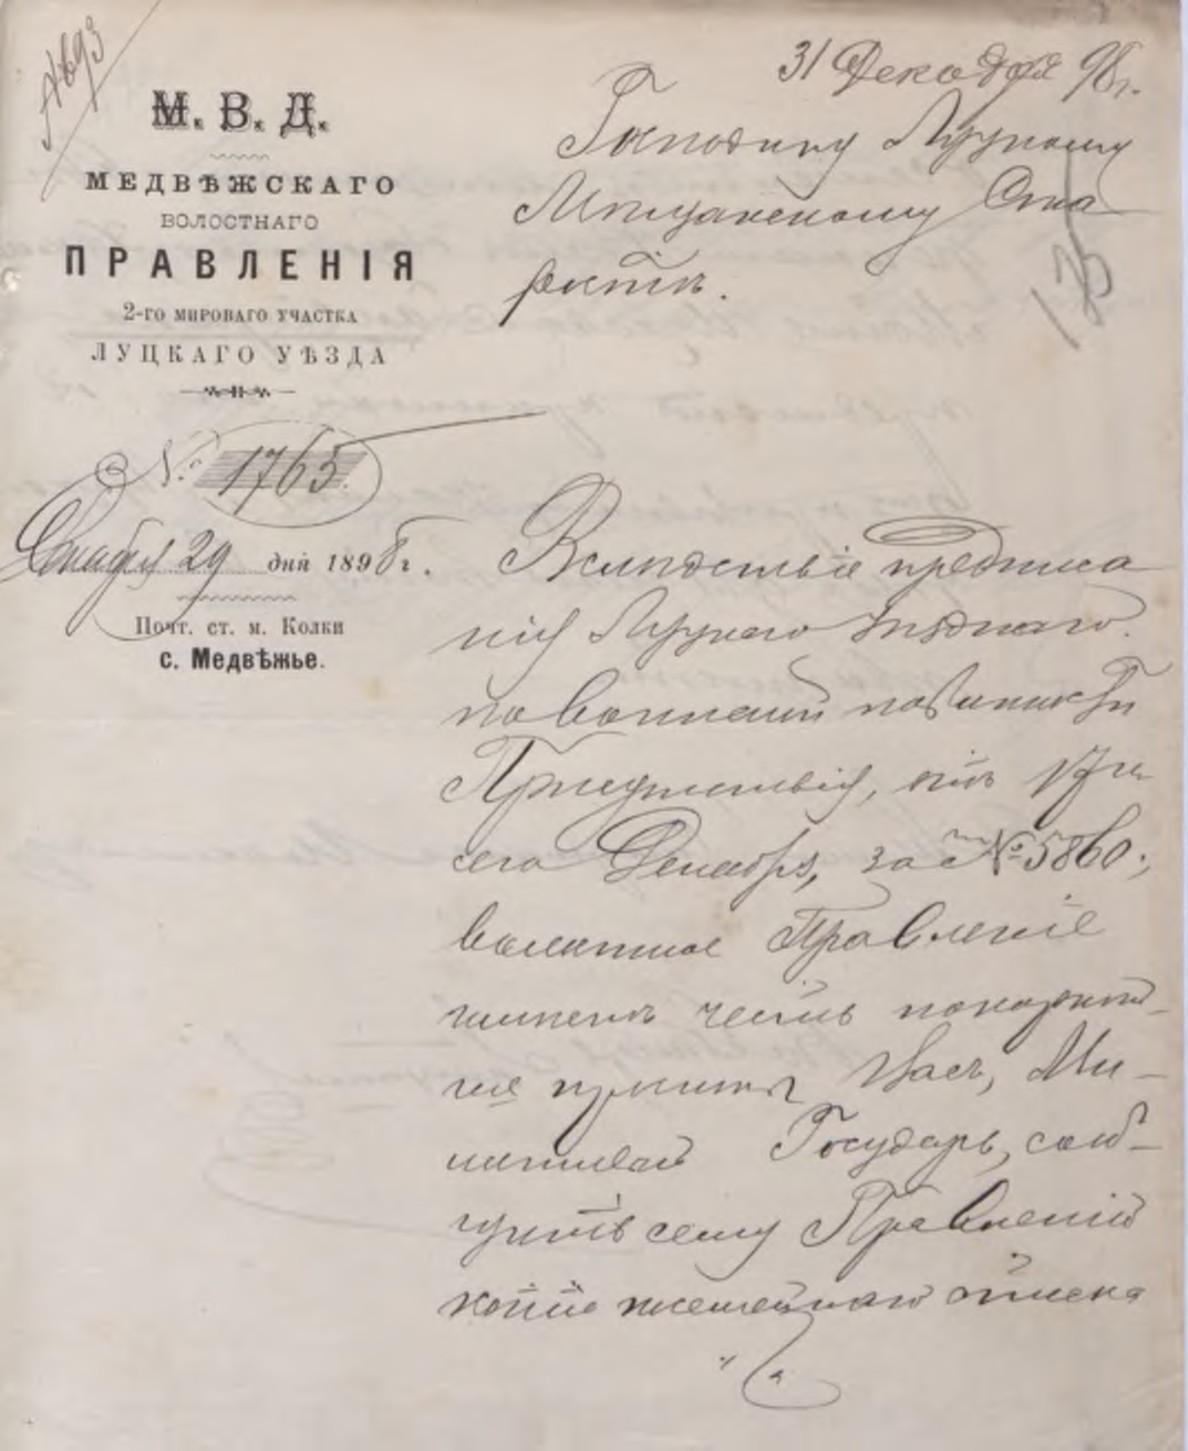 № 693
31 Декабря 98 г.
М. В. Д.
МЕДВѢЖСКАГО
ВОЛОСТНАГО
ПРАВЛЕНІЯ
2-ГО МИРОВАГО УЧАСТКА
ЛУЦКАГО УѢЗДА
№ 1765.
Декабря 29 дня 1898 г.
Почт. ст. м. Колки
с. Медвѣжье.
Господину Луцкому
Мѣщанскому Ста
ростѣ.
Вслѣдствіе предписа
нія Луцкаго уѣзднаго
по воинской повинности
Присутствія, отъ 17го
сего Декабря, за № 5860,
волостное Правленіе
имѣетъ честь покорнѣй-
ше просить Васъ, Ми-
лостивый Государь, сооб-
щить сему Правленію
копію посемейнаго списка